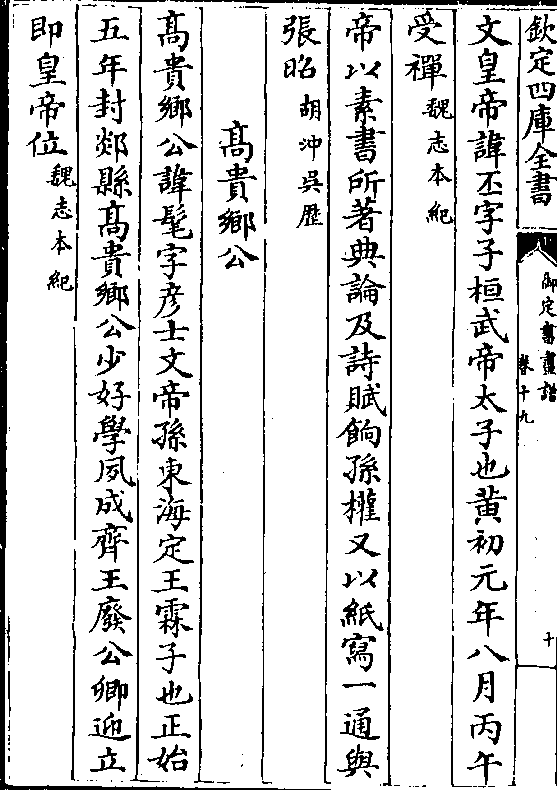 欽定四庫全書
御定書畫譜
卷十九
十
文皇帝諱丕字子桓武帝太子也黃初元年八月丙午
受禪魏志本紀
帝以素書所著典論及詩賦餉孫權又以紙寫一通與
張昭胡沖吳歷
髙貴鄉公
髙貴鄉公諱髦字彥士文帝孫東海定王霖子也正始
五年封郯縣髙貴鄉公少好學夙成齊王廢公卿迎立
即皇帝位魏志本紀